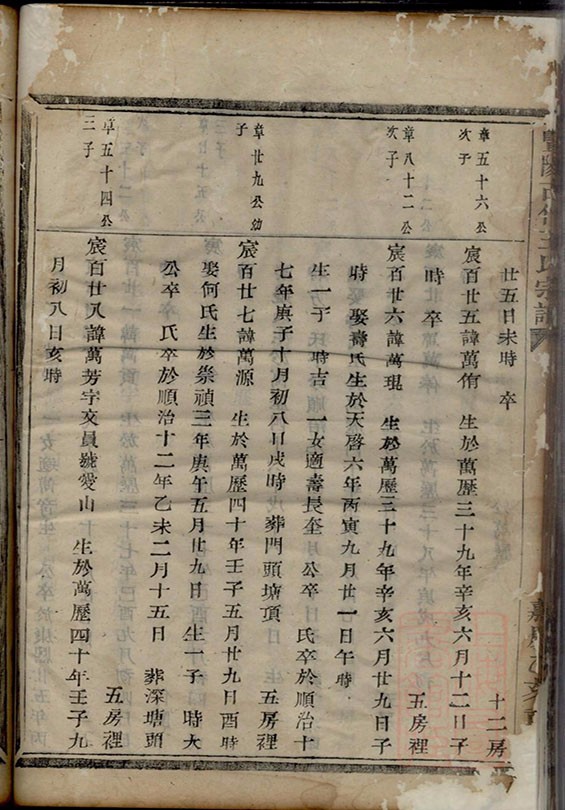 廿五日未時 卒 十二房
章五十六公次子
宸百廿五諱萬侑 生於萬歷三十九年辛亥六月十二日子
時卒 五房裡
章八十二公次子
宸百廿六諱萬琨 生於萬歷三十九年辛亥六月廿九日子
時 娶壽氏生於天啓六年丙寅九月廿一日午時
生一子 時吉 一女適壽長奎 公卒 氏卒於順治十
七年庚子十月初八日戌時 葬門頭塘頂 五房裡
章廿九公幼子
宸百廿七諱萬源 生於萬歷四十年壬子五月廿九日酉時
娶何氏生於崇禎三年庚午五月廿九日 生一子 時大
公卒 氏卒於順治十二年乙未二月十五日 葬深塘頭
五房裡
章五十四公三子
宸百廿八諱萬芳字文員號愛山 生於萬歷四十年壬子九
月初八日亥時
氏宗譜
嘉慶乙亥